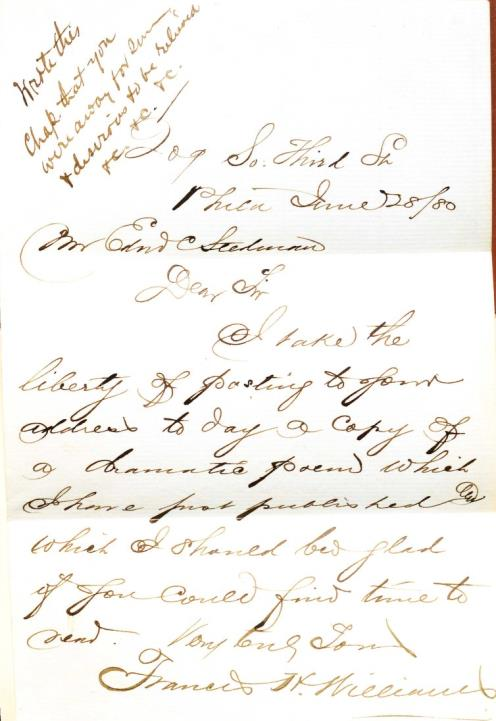 Wrote this
Chap that you
were away for
& desirous to be relieved
&c. &c. &c.
So. Third St
Phila June 28/80
Mr Edmd C Stedman
Dear Sir
I take the
liberty of posting to your
address to day a copy of
a dramatic poem which
I have just published &
which I should be glad
if you could find time to
read. Very truly Yours
Francis H. Williams